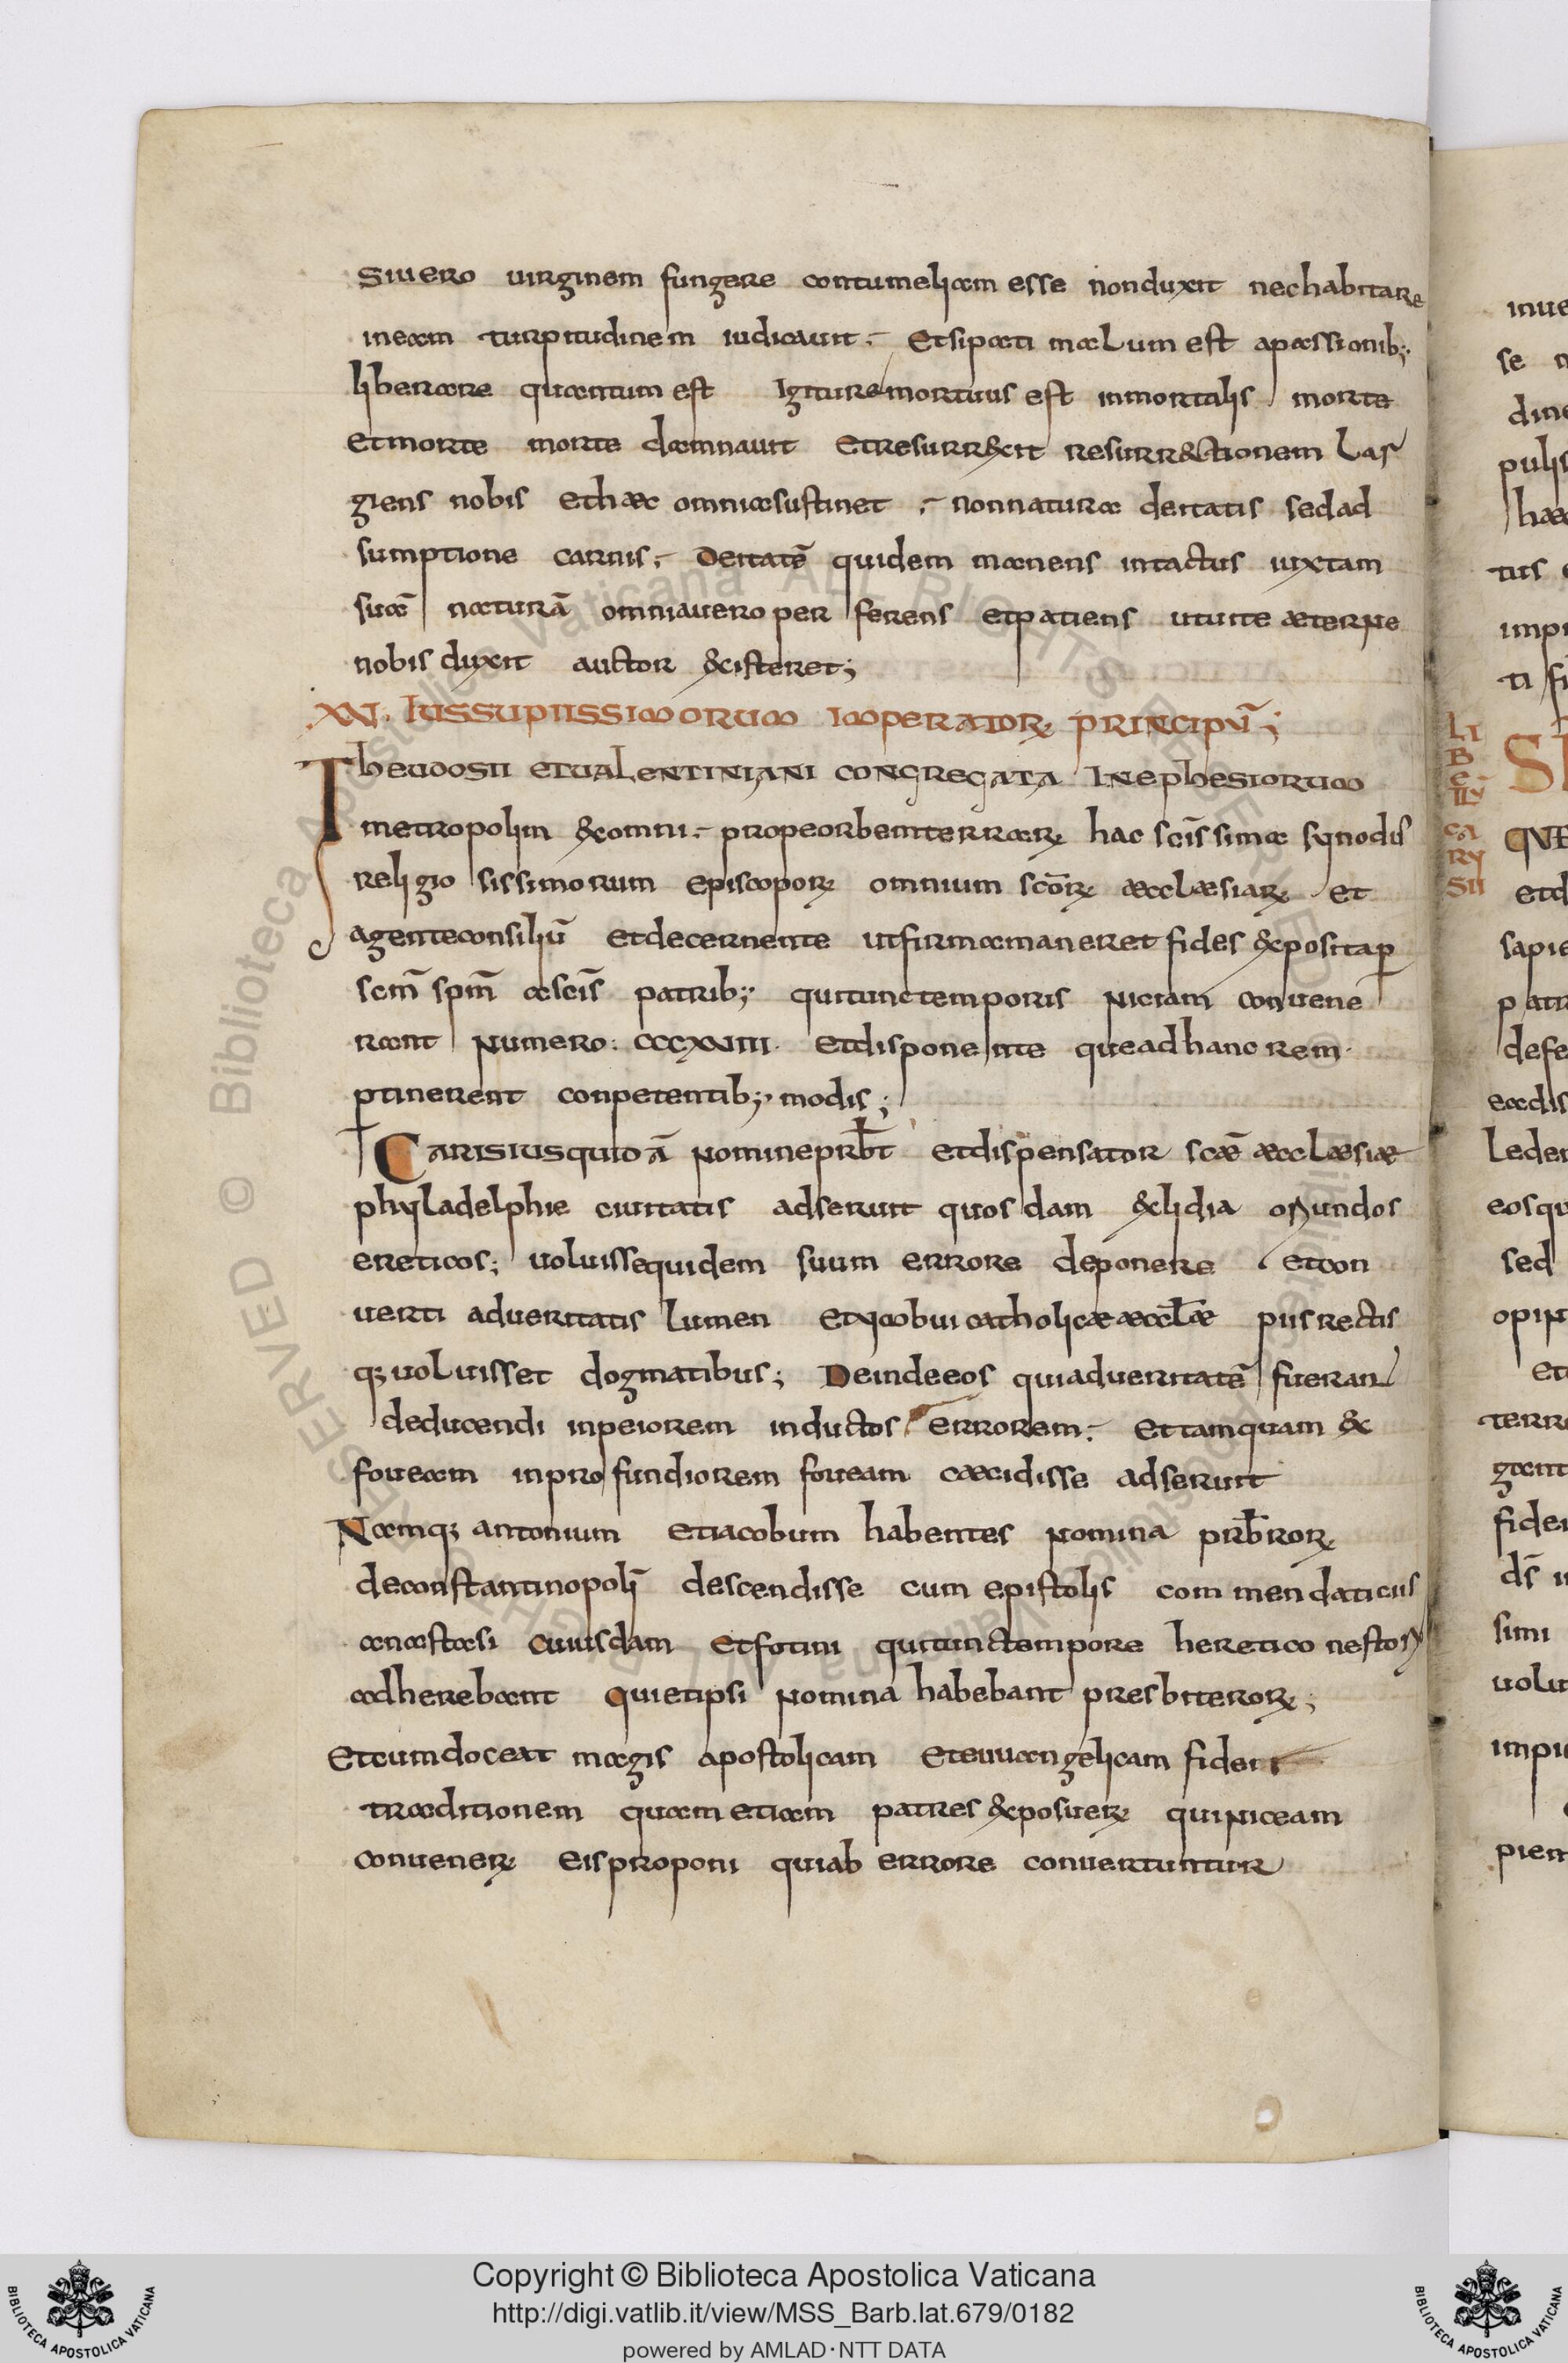 Siuero uirginem fungere contumeliam esse nonduxit nechabitare
ineam turpitudinem iudicauit. Etsipati malum est apassionib;
liberare quantum est Igituremortuus est inmortalis morte
etmorte morte damnauit Etresurrexit resurr&ctionem Lar
giens nobis ethæc omniasustinet nonnatura deitatis sedad
sumptione carnis. Deitatē quidem manens intactus iuxtam
suā naturā omniauero per ferens etpatiens utuite æterne
nobis duxit auctor &cisteret;
Iussupiissimorum imperatorꝝ principū;
Theudosii etualentiniani congregata inephesiorum
metropolim &comni propeorbemterrarꝝ hac scīssima synodus
religiosissimorum episcoporꝝ omnium scōrꝝ æcclæsiarꝝ et
agenteconsiliū etdecernente utfirmamaneret fides &cpositap
scm̄ spm̄ ascīs patrib; quitunctemporis niciam conuene
rant numero: CCCXVIII etdisponente queadhanc rem
ptinerent conpetentib; modis;
Carisiusquidā nomineprb̄t etdispensator scǣ æcclæsiæ
phyladelphie ciuitatis adseruit quosdam &clidia oriundos
ereticos; uoluissequidem suum errore deponere etcon
uerti adueritatis lumen catholicæ æccl̄æ piisrectis
q; uoluisset dogmatibus; Deindeeos quiadueritatē fueran
deducendi inpeiorem inductos errorem. Ettamquam &c
foueam inprofundiorem foueam cæcidisse adseruit
Namq; antonium etiacobum habentes nomina prb̄rorꝝ
deconstantinopolī descendisse cum epistolis commendaticiis
anastasi cuiusdam etfotini quitunctempore heretico nestorio
adherebant quietipsi nomina habebant presbiterorꝝ;
Etcumdoceat magis apostolicam eteuuangelicam fidei
traditionem quametiam patres &cposuerꝝ quiniceam
conuenerꝝ eisproponi quiab errore conuertuntur
LI
B
E
LLŪ
CA
RY
SII
inue
se
dine
pulis
hæc
tus
impi
ti
QVE
etd
sapie
patr
defe
Leder
eosqu
sed
opin
et
terr
gant
fidei
simi
uolu
impi
piem
© Biblioteca Apostolica Vaticana ALL RIGHTS RESERVED
Copyright © Biblioteca Apostolica Vaticana
http://digi.vatlib.it/view/MSS_Barb.lat.679/0182
powered by AMLAD·NTT DATA
BIBLIOTECA APOSTOLICA VATICANA
BIBLIOTECA APOSTOLICA VATICANA